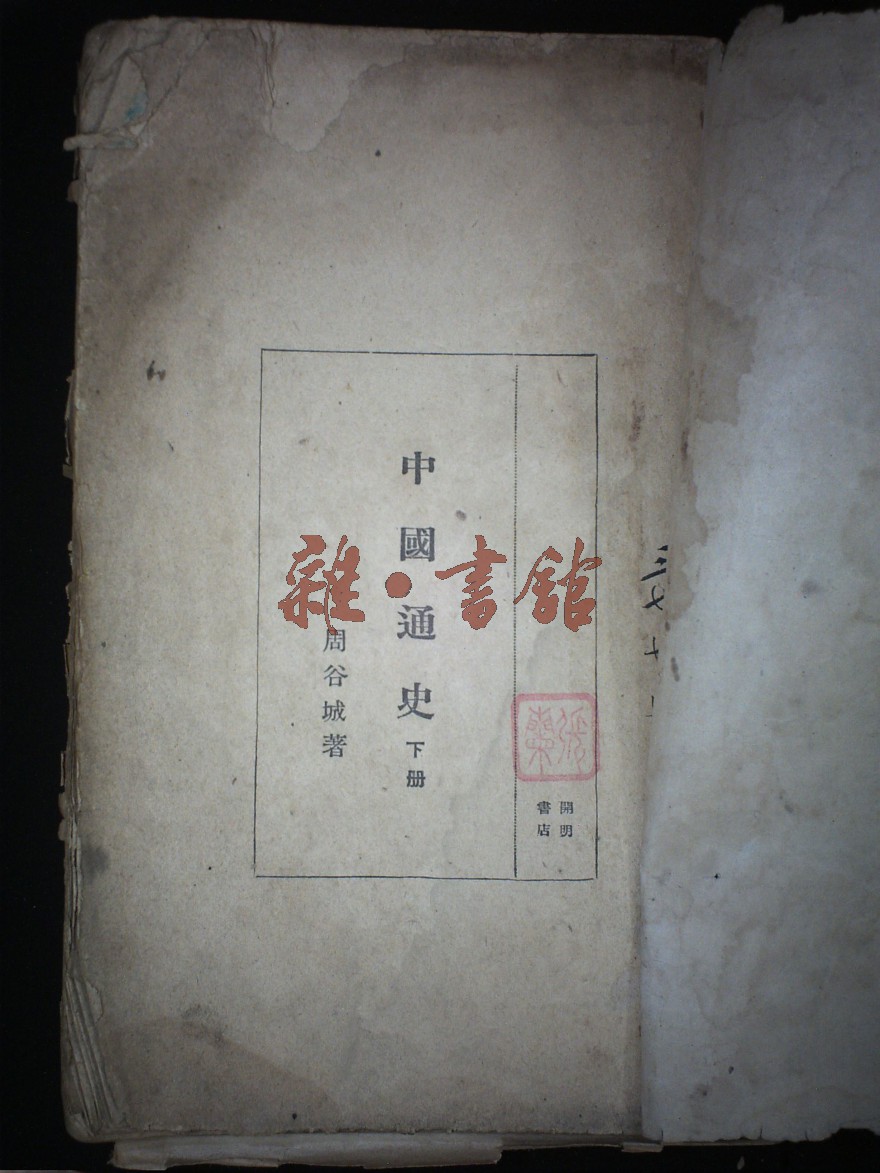 中國通史 下册
周谷城著
開明
書店
雜·書館